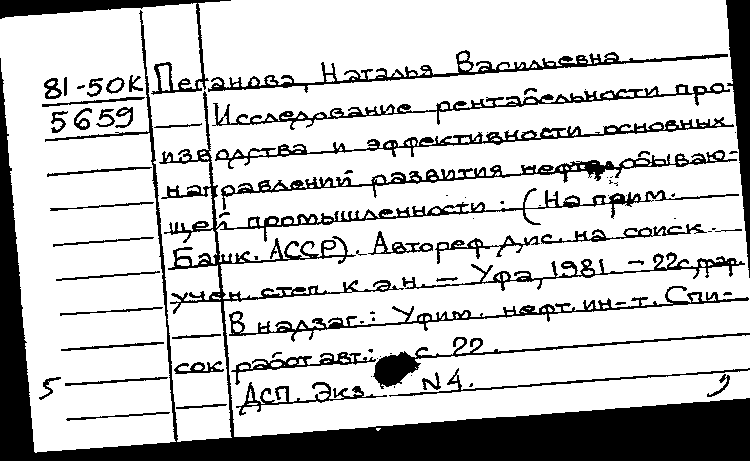 81-50К
5659
Пеганова, Наталья Васильевна.
Исследование рентабельности про-
изводства и эффективности основных
направлений развития нефтедобываю-
щей промышленности: (На прим.
Башк. АССР). Автореф. дис. на соиск.
учен. степ. к.э.н. — Уфа, 1981. - 22с,
В надзаг.: Уфим. нефт. ин-т. Спи-
сок работ авт.: с. 22.
5
ДСП. Экз. N4.